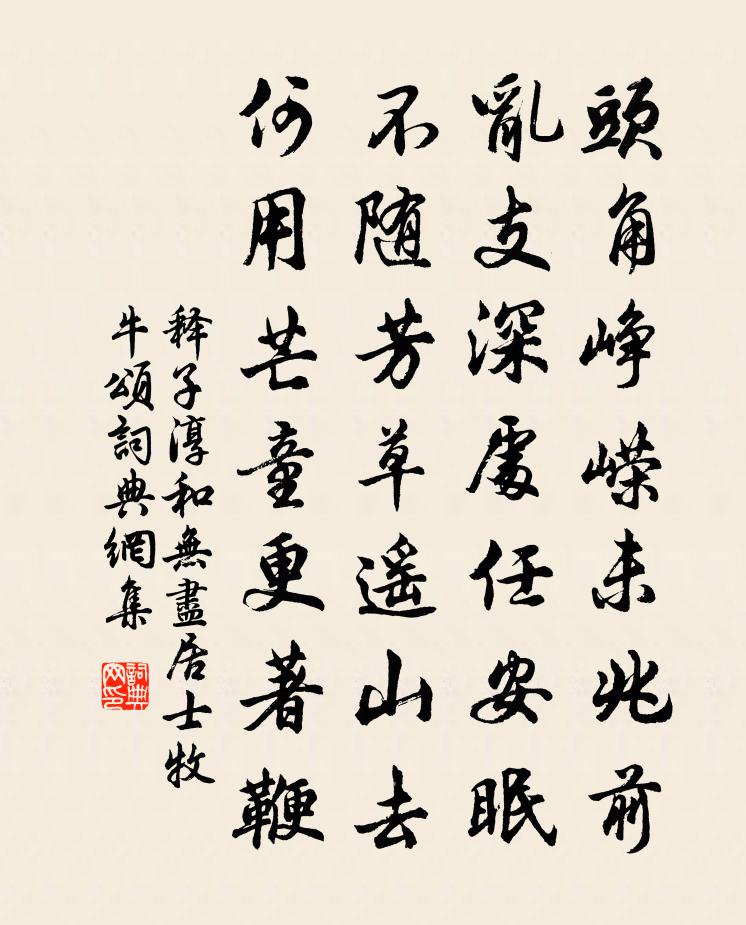 頭角崢嶸未兆前
亂支深處任安眠
不随芳草遥山去
何用芒童更著鞭
释子淳和無盡居士牧
牛頌詞典網集
詞典網印